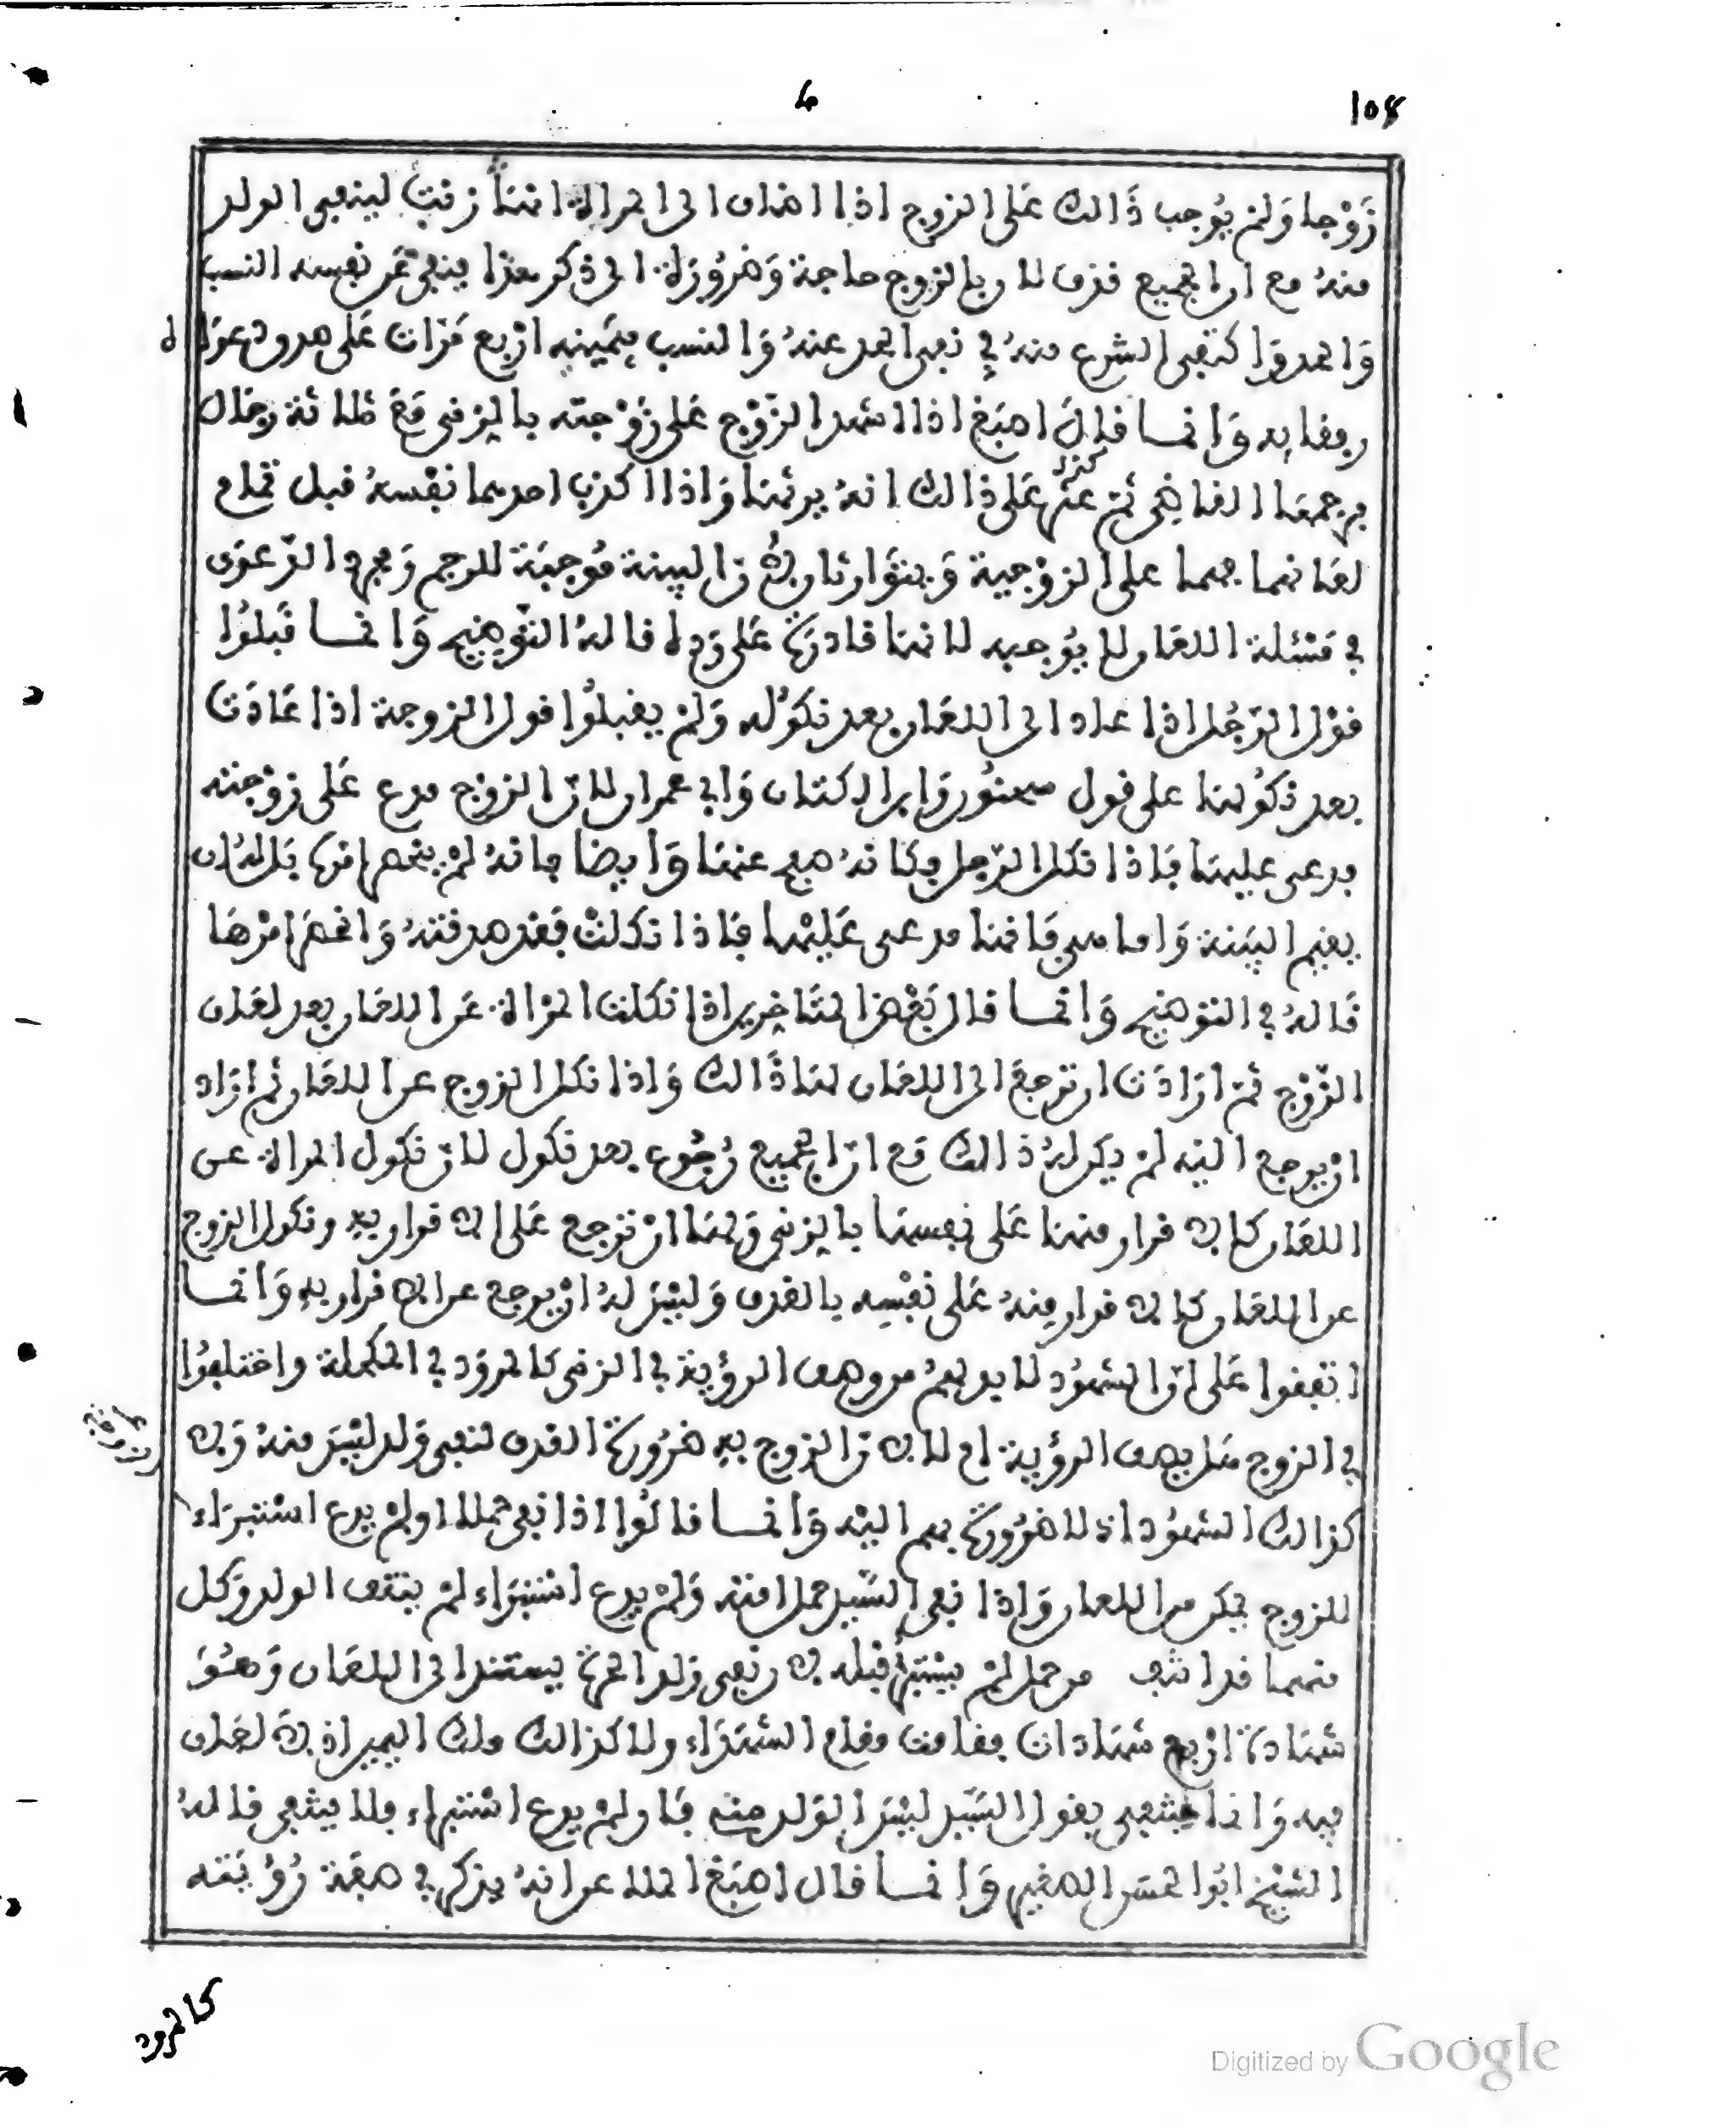 108
زَوْجا وَلمْ يُوجب ذَالك عَلى الزوج اذا اضاف الى المرالة انها زنت لينفي الولد
منهُ مع ان الجميع قذف لان بالزوج حاجة وَضرُورَة الى ذكر هذا ينفي عَن نفسه النسب
وَالحد وَاكتفى الشرع منهُ في نفي الحد عنهُ وَالنسب بيَمينه ارْبع مَرّات عَلى صدوق عَذله
رمفابه وَانمـا قالَ اصبَغ اذا شهد الزّوْج عَلى زَوْجته بالزنى مَعَ ثلاثة رجال
فرجمهَا القاضي ثمّ عثر عَلى ذالك انهُ يرثها وَاذا اكذب احدهما نفْسهُ قبل تمام
لعَانهما فهما على الزوْجية وَيتوَارثان لأنّ البينة مُوجبَة للرجم وَمجرد الدّعوَى
في مَسْئلة اللعَان لا يُوجبه لانها قادرَة عَلى رَده قالهُ التوْضيح وَانمـا قَبلوُا
قوْل الرّجُل اذا عاد الى اللعَان بعد نكوُله وَلمْ يقبلوُا قول الزوجة اذا عَادَت
بعد نكوُلها على قول سحنوُن وَابن الكتاب وَابي عمران لانّ الزوْج مدع عَلى زوْجته
مدعى عليها فاذا نكل الرّجل فكانهُ صفح عنها وَايضا فانهُ لمْ ينحصم امرها بَل لهُ ان
يقيم البيّنة وَاما هي فَانها مدعى عَليْها فاذا نكلتْ فقد صدقتهُ وَانحصَم امْرهَا
قَالهُ في التوضيح وَانمـا قال بَعْض المتَاخرين اذا نكلت المرْالة عَن اللعَان بعد لعَان
الزّوْج ثمّ ارَادَت ان ترجعَ الى اللعَان لها ذَالك وَاذا نكل الزوج عن اللعَان ثم ارَاد
انْ يرجع اليْه لمْ يكن لهُ ذالك مَع انّ الجميع رُجُوع بعد نكول لانّ نكول المرالة عن
اللعَان كالاقرار منها عَلى نفسها بالزنى وَلها انْ ترْجع عَلى الاقرار به ونكول الزوج
عن اللعَان كالاقرار منهُ عَلى نفْسِه بالقذف وَليْسَ لهُ انْ يرجع عن الاقرار به وَانمـا
اتفقوا عَلى انّ الشهُود لا بد لهمُ من وصف الرؤية في الزنى كالمروَد في المكحلة واختلفوُا
في الزوج هَل يصف الرؤية ام لا لانّ الزوج به ضرُورَة القذف لنفي وَلد ليْسَ منهُ وَلا
كذالك الشهُود اذ لا ضرُورَة بهم اليْه وَانمـا قالوُا اذا نفى حملا ولمْ يدع اسْتبرَاء
للزوج يمكن من اللعان وَاذا نفى السّيد حملا منه وَلمْ يدع اسْتبرَاء لمْ ينتف الولد وَكل
منهما قد انتفى من حمل لمْ يسْتبرأ قبله لان نفي ولد الحرة يستند الى اللعَان وَهـوَ
شهَادة ارْبع شهَادات فقامت مقام الاسْتبرَاء ولا كذالك ملك اليمين اذ لا لعَان
فيه وَانما ينتفي بقول السّيد ليْسَ الوَلد منه فان ولمْ يدع اسْتبراء فلا ينتفي قالهُ
الشيْخ ابُو الحسَن الصغير وَانمـا قال اصبَغ الملاعن انهُ يذكر في صفَة رُؤيَته
كالمرود
Digitized by Google